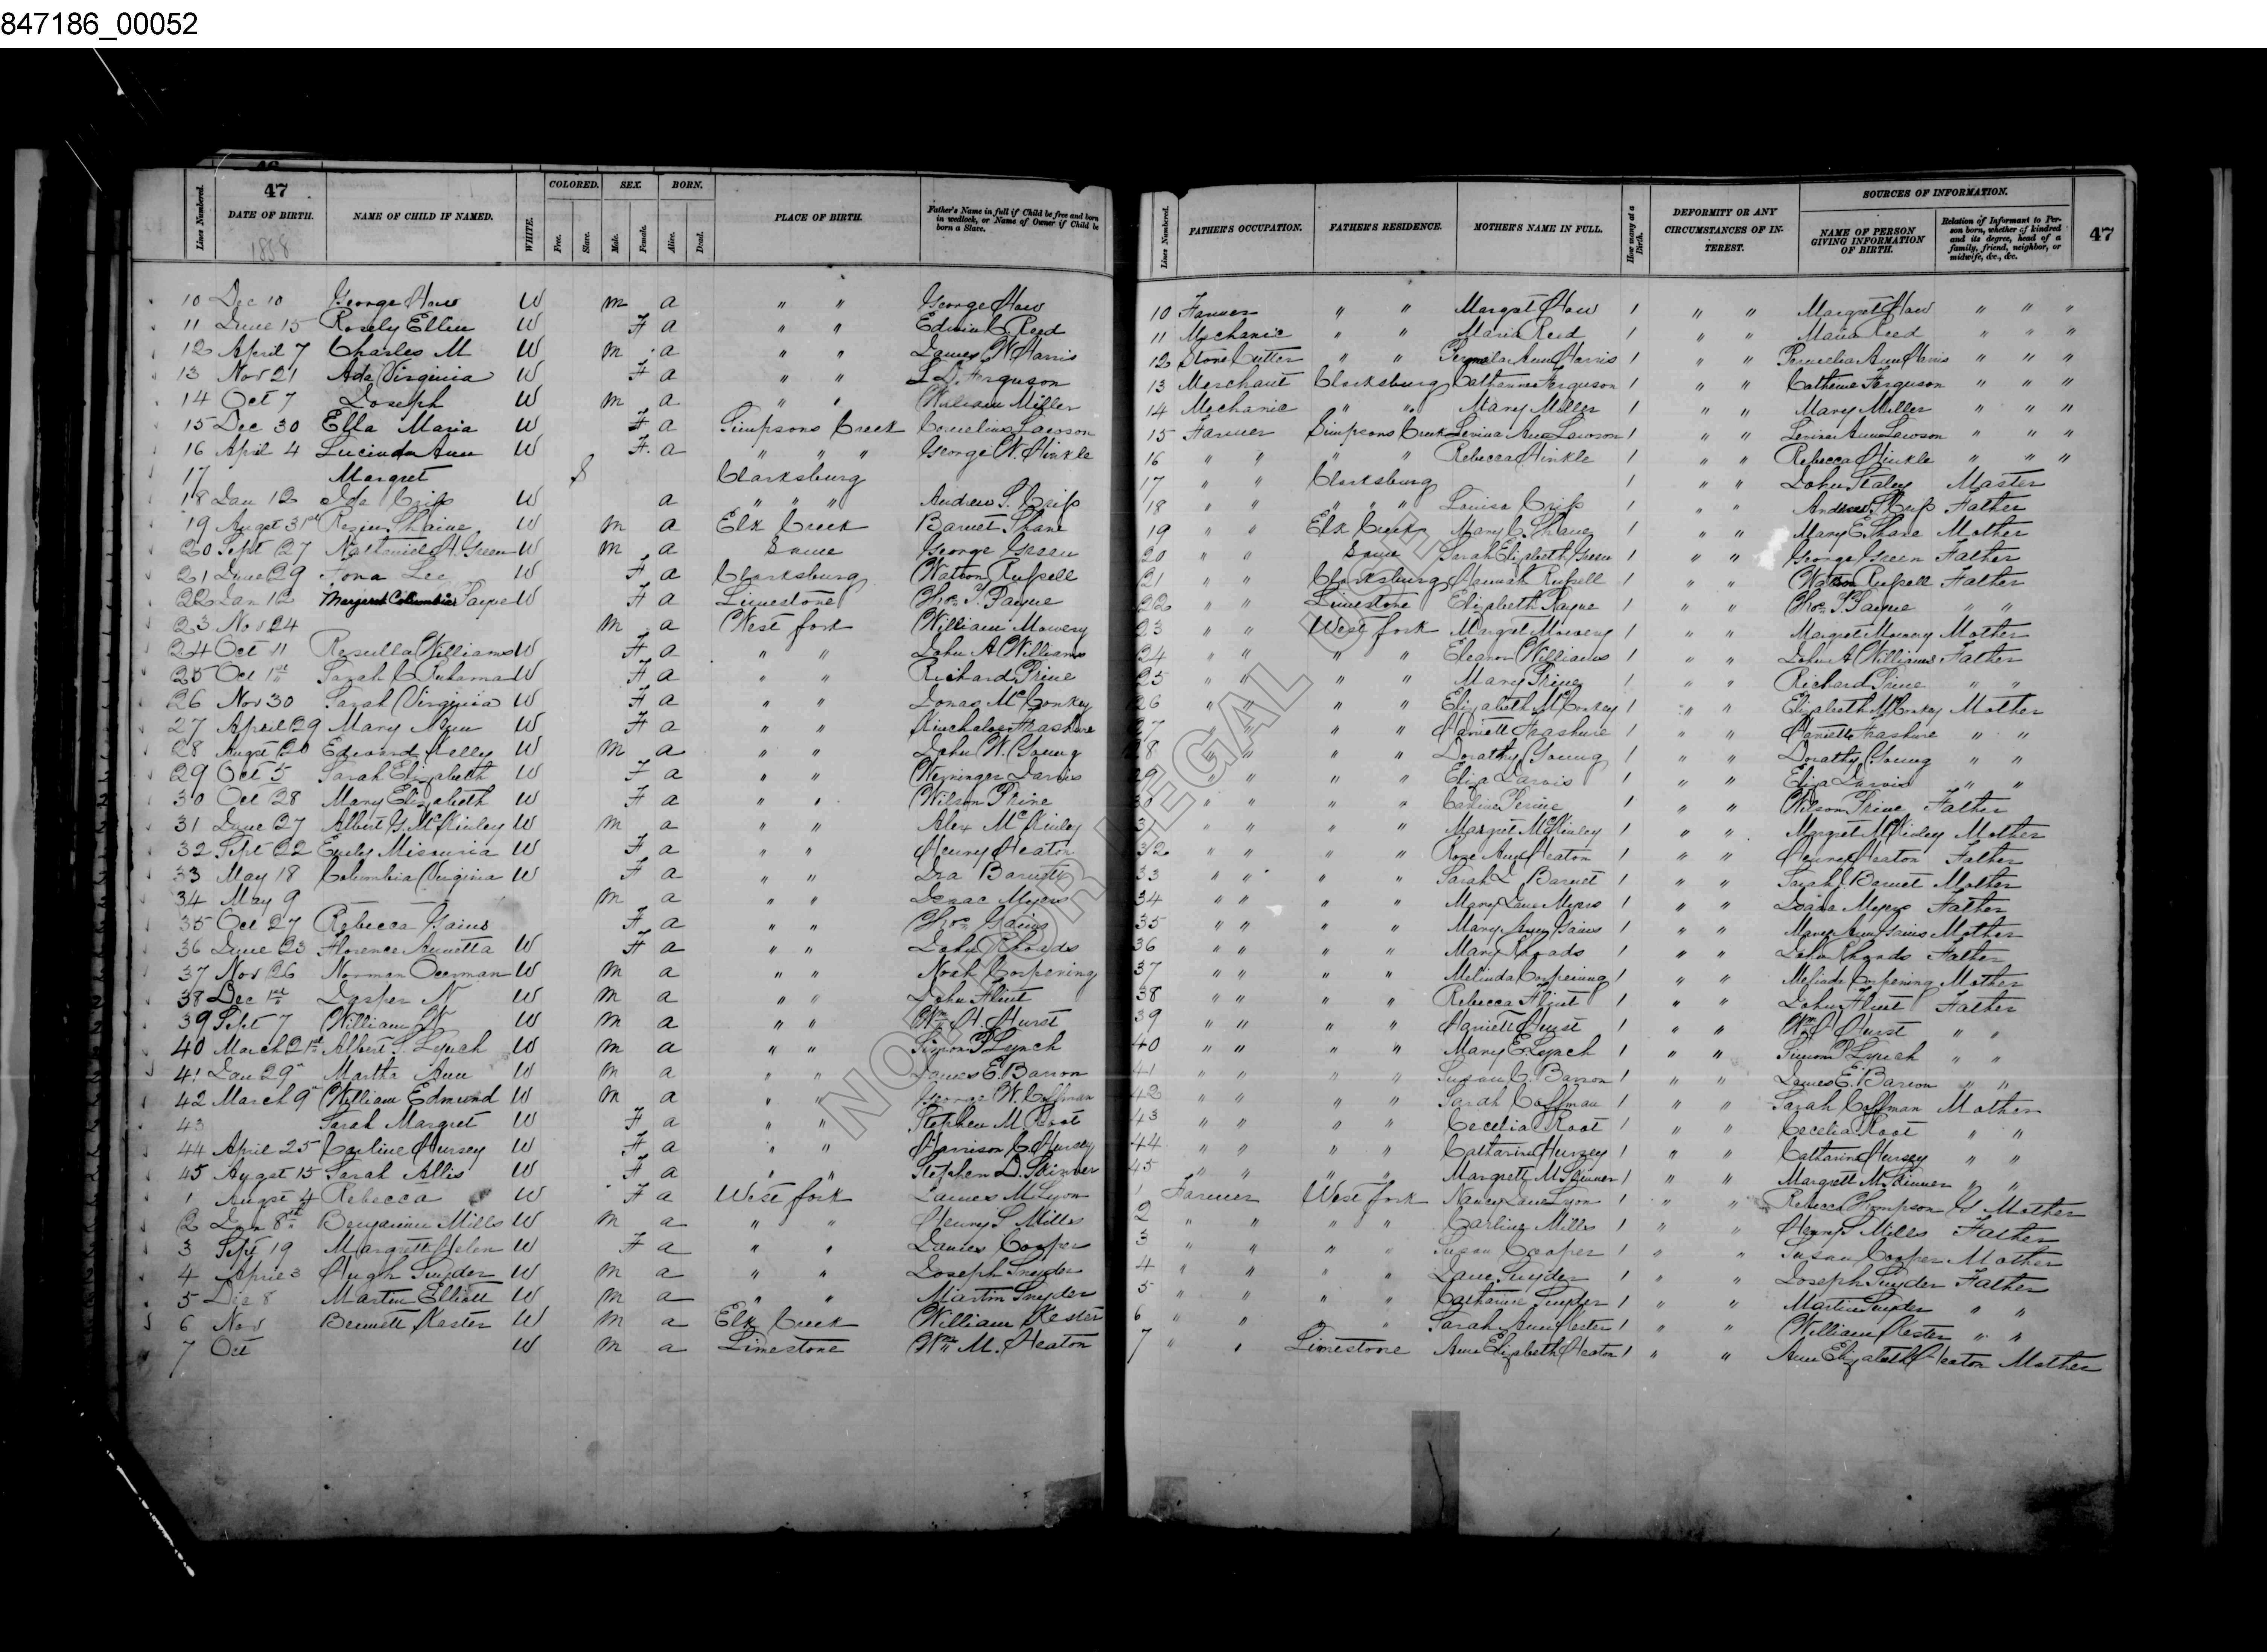 847186_00052
47
Lines Numbered. DATE OF BIRTH. NAME OF CHILD IF NAMED. WHITE. COLORED. Free. Slave. SEX. Male. Female. BORN. Alive. Dead. PLACE OF BIRTH. Father's Name in full if Child be free and born in wedlock, or Name of Owner if Child be born a Slave.
1858
10 Dec 10 George Haw W m a " " George Haw
11 June 15 Rosely Ellen W F a " " Edwin C Reed
12 April 7 Charles M W m a " " James W Harris
13 Nov 21 Ada Virginia W F a " " L D. Ferguson
14 Oct 7 Joseph W m a " " William Miller
15 Dec 30 Ella Maria W F a Simpsons Creek Cornelius Lawson
16 April 4 Lucinda Ann W F a " " " George W. Hinkle
17 Margret S Clarksburg
18 Jan 12 Ida Crifs W a " " " Andrew S. Crifs
19 Augst 31st Rezin Shaine W m a Elk Creek Barnet Shane
20 Sept 27 Nathaniel H. Green W m a Same George Green
21 June 29 Iona Lee W F a Clarksburg Watson Rufsell
22 Jan 12 Margaret Columbia Payne W F a Limestone Thos. T. Payne
23 Nov 24 m a West fork William Mowery
24 Oct 11 Rosulla Williams W F a " " John A Williams
25 Oct 1st Sarah C W F a " " Richard Prine
26 Nov 30 Sarah Virginia W F a " " Jonas McConkey
27 April 29 Mary Ann W F a " " Frashure
28 Augst 20 Edward Kelly W m a " " John W. Young
29 Oct 5 Sarah Elizabeth W F a " " Jarvis
30 Oct 28 Mary Elizabeth W F a " " Wilson Prine
31 June 27 Albert G. McKinley W m a " " Alex McKinley
32 Sept 22 Emily Missuria W F a " " Henry Heaton
33 May 18 Columbia Virginia W F a " " Ira Barnett
34 May 9 m a " " Isaac Myers
35 Oct 27 Rebecca Gains F a " " Thos. Gains
36 June 23 Florence Annetta W F a " " John Rhoads
37 Nov 26 Norman Ocerman W m a " " Noah Corpening
38 Dec 1st Jasper N W m a " " John Flint
39 Sept 7 William W W m a " " Wm. H. Hurst
40 March 21st Albert S. Lynch W m a " " Simon P Lynch
41 Jan 29" Martha Ann W m a " " James E. Barron
42 March 9" William Edmund W m a " " George W. Coffman
43 Sarah Margret W F a " " Stephen M Root
44 April 25 Carline Hursey W F a " " Harrison C Hursey
45 Augst 15 Sarah Allis W F a " " Stephen D. Skinner
1 Augst 4 Rebecca W F a West fork James M Lyon
2 Jan 8th Benjamin Mills W m a " " Henry S Mills
3 Sept 19 Margrett Helen W F a " " James Cooper
4 April 3 Hugh Snyder W m a " " Joseph Snyder
5 Dec 8 Marten Elliott W m a " " Martin Snyder
6 Nov Bennett Kaster W m a Elk Creek William Kester
7 Oct W m a Limestone Wm. M. Heaton
Lines Numbered. FATHER'S OCCUPATION. FATHER'S RESIDENCE. MOTHER'S NAME IN FULL. How many at a Birth. DEFORMITY OR ANY CIRCUMSTANCES OF INTEREST. SOURCES OF INFORMATION. NAME OF PERSON GIVING INFORMATION OF BIRTH. Relation of Informant to Person born, whether of kindred and its degree, head of a family, friend, neighbor, or midwife, &c., &c. 47
10 Farmer " " Margret Haw 1 " " Margret Haw " " "
11 Mechanic " " Maria Reed 1 " " Maria Reed " " "
12 Stone Cutter " " Ann Harris 1 " " Permelia Ann Harris " " "
13 Merchant Clarksburg Catharine Ferguson 1 " " Catherine Ferguson " " "
14 Mechanic " " Mary Miller 1 " " Mary Miller " " "
15 Farmer Simpsons Creek Levina Ann Lawson 1 " " Levina Ann Lawson " " "
16 " " " " Rebecca Hinkle 1 " " Rebecca Hinkle " " "
17 " " Clarksburg 1 " " John Stealey Master
18 " " " " " Louisa Crifs 1 " " Andrew S Crifs Father
19 " " Elk Creek Mary C. Shane 1 " " Mary E. Shane Mother
20 " " Same Sarah Elizabeth Green 1 " " George Green Father
21 " " Clarksburg Hannah Rufsell 1 " " Watson Rufsell Father
22 " " Limestone Elizabeth Payne 1 " " Thos. T. Payne " "
23 " " West fork Margret Mowery 1 " " Margret Mowery Mother
24 " " " " Eleanor Williams 1 " " John A Williams Father
25 " " " " Mary Prine 1 " " Richard Prine " "
26 " " " " Elizabeth McConkey 1 " " Elizabeth McConkey Mother
27 " " " " Harriett Frashure 1 " " Harriett Frashure " "
28 " " " " Dorathy Young 1 " " Dorathy Young " "
29 " " " " Eliza Jarvis 1 " " Eliza Jarvis " "
30 " " " " Carline Perine 1 " " Wilson Prine Father
31 " " " " Margret McKinley 1 " " Margret McKinley Mother
32 " " " " Rose Ann Heaton 1 " " Henry Heaton Father
33 " " " " Sarah J. Barnet 1 " " Sarah J. Barnet Mother
34 " " " " Mary Jane Myers 1 " " Isaac Myers Father
35 " " " " Mary Ann Gains 1 " " Mary Ann Gains Mother
36 " " " " Mary Rhoads 1 " " John Rhoads Father
37 " " " " Melinda Corpening 1 " " Melinda Corpening Mother
38 " " " " Rebecca Flint 1 " " John Flint Father
39 " " " " Harriett Hurst 1 " " Wm. H Hurst " "
40 " " " " Mary E. Lynch 1 " " Simon P. Lynch " "
41 " " " " Susan C. Barron 1 " " James E. Barron " "
42 " " " " Sarah Coffman 1 " " Sarah Coffman Mother
43 " " " " Cecelia Root 1 " " Cecelia Root " "
44 " " " " Catharine Hursey 1 " " Catharine Hursey " "
45 " " " " Margrett M. Skinner 1 " " Margrett M. Skinner " "
1 Farmer West fork Nancy Jane Lyon 1 " " Rebecca Thompson G Mother
2 " " " " Carline Mills 1 " " Henry S Mills Father
3 " " " " Susan Cooper 1 " " Susan Cooper Mother
4 " " " " Jane Snyder 1 " " Joseph Snyder Father
5 " " " " Catharine Snyder 1 " " Martin Snyder " "
6 " " " " Sarah Ann Kester 1 " " William Kester " "
7 " " Limestone Ann Elizabeth Heaton 1 " " Ann Elizabeth Heaton Mother
NOT FOR LEGAL USE